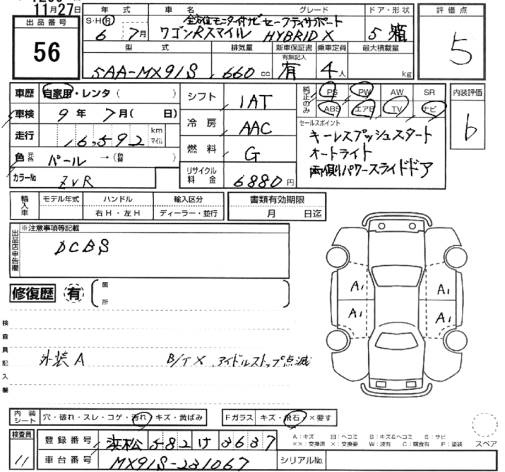 11月27日
出品番号
56
年式
S・H R
6年 7月
グレード
全方位モニター付ナビ セーフティサポート
ワゴンRスマイル HYBRID X
ドア・形状
5 箱
評価点
5
型式
5AA-MX91S
排気量
660cc
新車保証書
有無記入
有
乗車定員
4人
最大積載量
kg
車歴 自家用・レンタ ( )
車検 9年 7月( 日)
走行 16,592 km マイル
色 パール →(替 )
カラーNo ZVR
シフト 1AT
冷房 AAC
燃料 G
リサイクル料金 6880円
純正のみ
PS PW AW SR
ABS エアB TV ナビ
内装評価
b
セールスポイント
キーレスプッシュスタート
オートライト
両側パワースライドドア
輸入車
モデル年式 ハンドル 輸入区分
右H・左H ディーラー・並行
書類有効期限
月 日迄
出品店申告欄
※注意事項等記載
DCBS
修復歴 有
箇所
検査員記入欄
外装A
B/T X アイドルストップ点滅
A1 A1
A1 A1
内装シート
穴・破れ・スレ・コゲ・汚れ・キズ・黄ばみ
Fガラス キズ・飛石・×要す
検査員
11
登録番号 浜松 582 け 3637
車台番号 MX91S-231067
シリアルNo.
A:キズ U:ヘコミ B:キズ&ヘコミ S:サビ
××:交換済 X:交換要 W:波有 C:腐食有 P:塗装
スペア